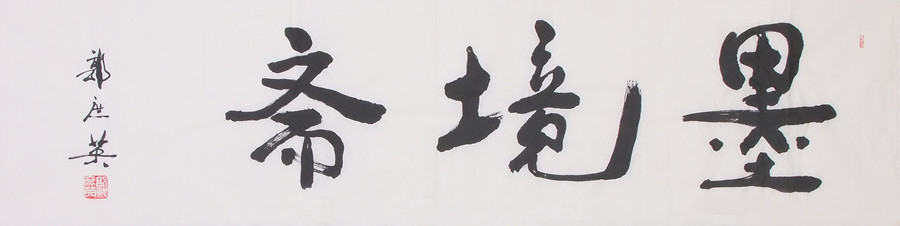 墨境斋
郭庶英